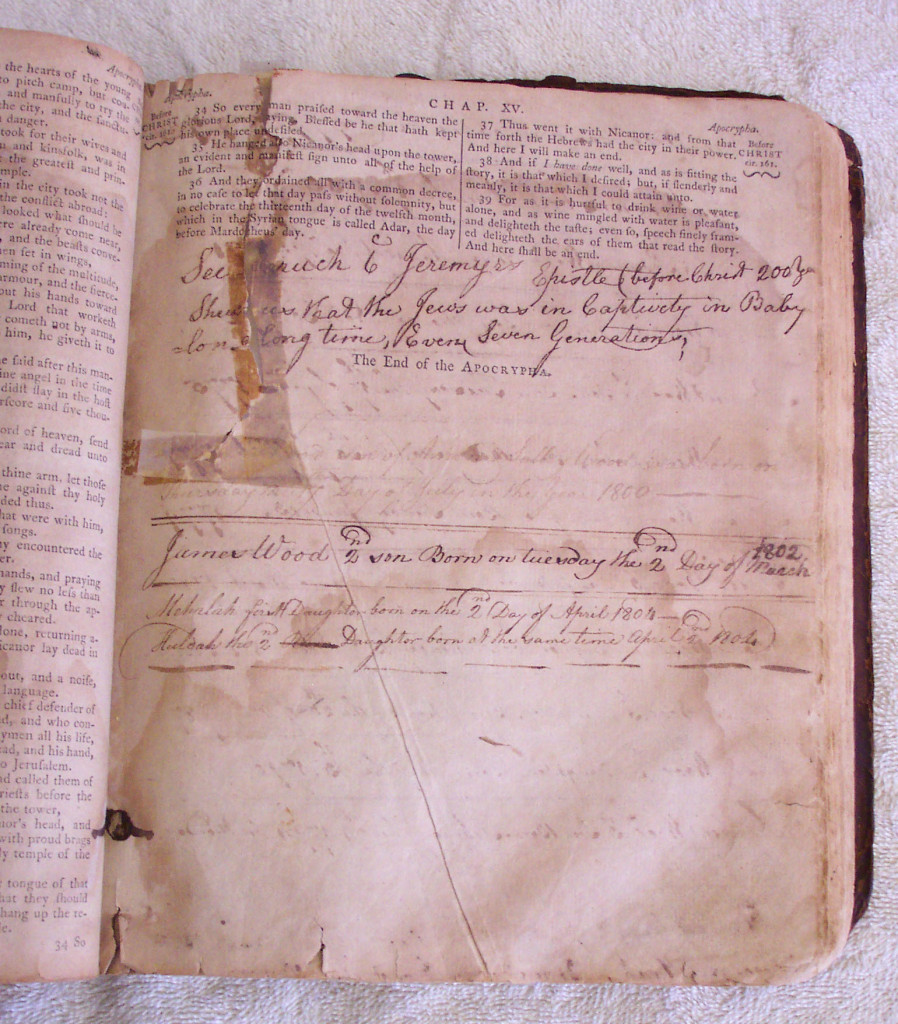 the hearts of the young
to pitch camp, but cou-
and manfully to try the
the city, and the sanctu-
danger.
took for their wives and
and kinsfolk, was in
the greatest and prin-
mple.
in the city took not the
the conflict abroad:
looked what should be
ere already come near,
and the beasts conve-
men set in wings,
ming of the multitude,
armour, and the fierce-
out his hands toward
Lord that worketh
cometh not by arms,
him, he giveth it to
he said after this man-
ine angel in the time
didst slay in the host
erscore and five thou-
ord of heaven, send
ear and dread unto
thine arm, let those
e against thy holy
ded thus.
hat were with him,
songs.
ny encountered the
er.
hands, and praying
y slew no less than
through the ap-
cheared.
done, returning a-
icanor lay dead in
out, and a noise,
language.
chief defender of
d, and who con-
ymen all his life,
ead, and his hand,
o Jerusalem.
d called them of
riests before the
the tower,
nor's head, and
with proud brags
y temple of the
tongue of that
hat they should
hang up the re-
e.
34 So
Apocrypha.
CHAP. XV.
Apocrypha.
Before
CHRIST
cir. 161.
34 So every man praised toward the heaven the
glorious Lord, saying, Blessed be he that hath kept
his own place undefiled.
35 He hanged also Nicanor's head upon the tower,
an evident and manifest sign unto all of the help of
the Lord.
36 And they ordained all with a common decree,
in no case to let that day pass without solemnity, but
to celebrate the thirteenth day of the twelfth month,
which in the Syrian tongue is called Adar, the day
before Mardocheus' day.
37 Thus went it with Nicanor: and from that
time forth the Hebrews had the city in their power.
And here I will make an end.
38 And if I have done well, and as is fitting the
story, it is that which I desired; but, if slenderly and
meanly, it is that which I could attain unto.
39 For as it is hurtful to drink wine or water
alone, and as wine mingled with water is pleasant,
and delighteth the taste; even so, speech finely fram-
ed delighteth the ears of them that read the story.
And here shall be an end.
Before
CHRIST
cir. 161.
See Baruch 6 Jeremys Epistle (before Christ 200
Shews us that the Jews was in Captivety in Baby
=lon a long time, Even Seven Generations,
The End of the APOCRYPHA.
son of Wood was born on
Thursday the 17 Day of July in the Year 1800
James Wood 2nd son Born on tuesday the 2nd Day of March 1802
Mehalah first Daughter born on the 2nd Day of April 1804
Huldah the 2nd Daughter born at the same time April 2nd 1804